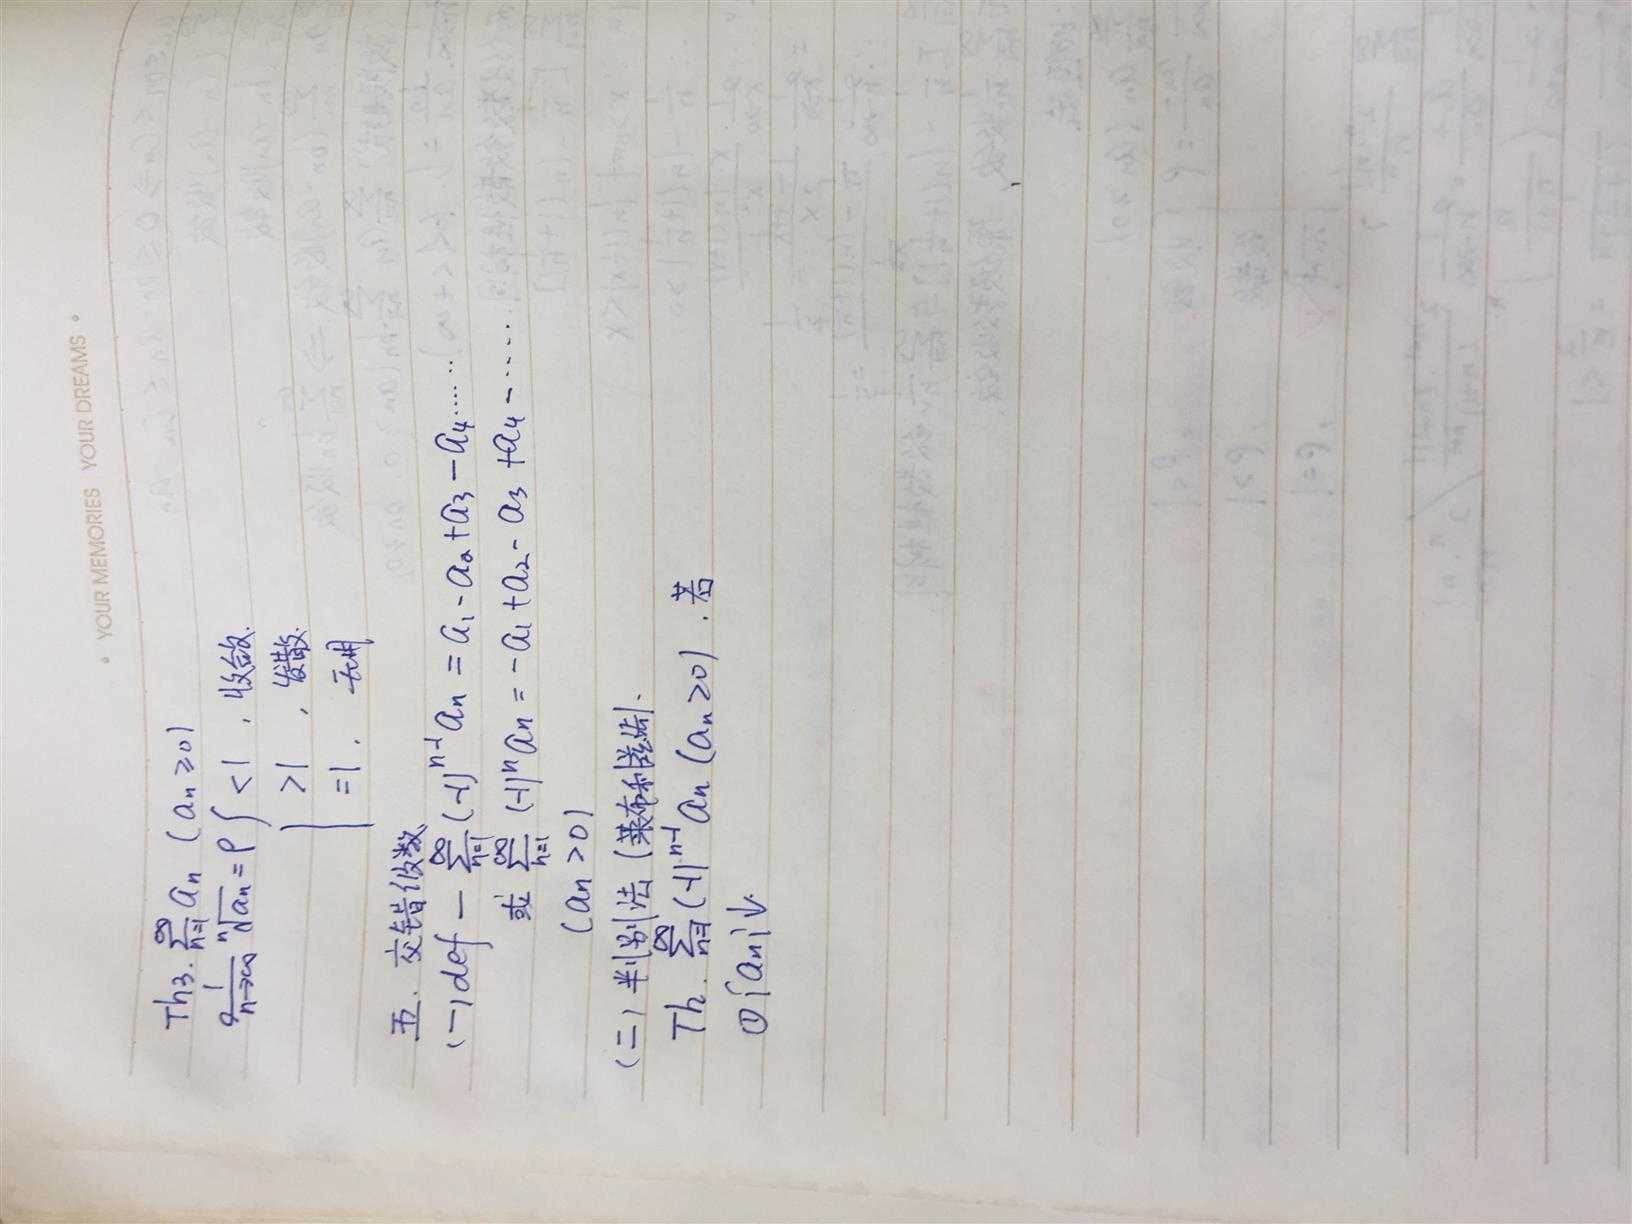 • YOUR MEMORIES YOUR DREAMS •
Th3. ∑_{n=1}^{∞} an (an ≥ 0)
lim_{n→∞} ⁿ√an = ρ { < 1 , 收敛.
> 1 , 发散.
= 1 , 无用
五. 交错级数
(一) def — ∑_{n=1}^{∞} (-1)^{n-1} an = a1 - a2 + a3 - a4 ……
或 ∑_{n=1}^{∞} (-1)^n an = -a1 + a2 - a3 + a4 - ……
(an > 0)
(二) 判别法 (莱布利兹法).
Th. ∑_{n=1}^{∞} (-1)^{n-1} an (an ≥ 0) . 若
① {an} ↓